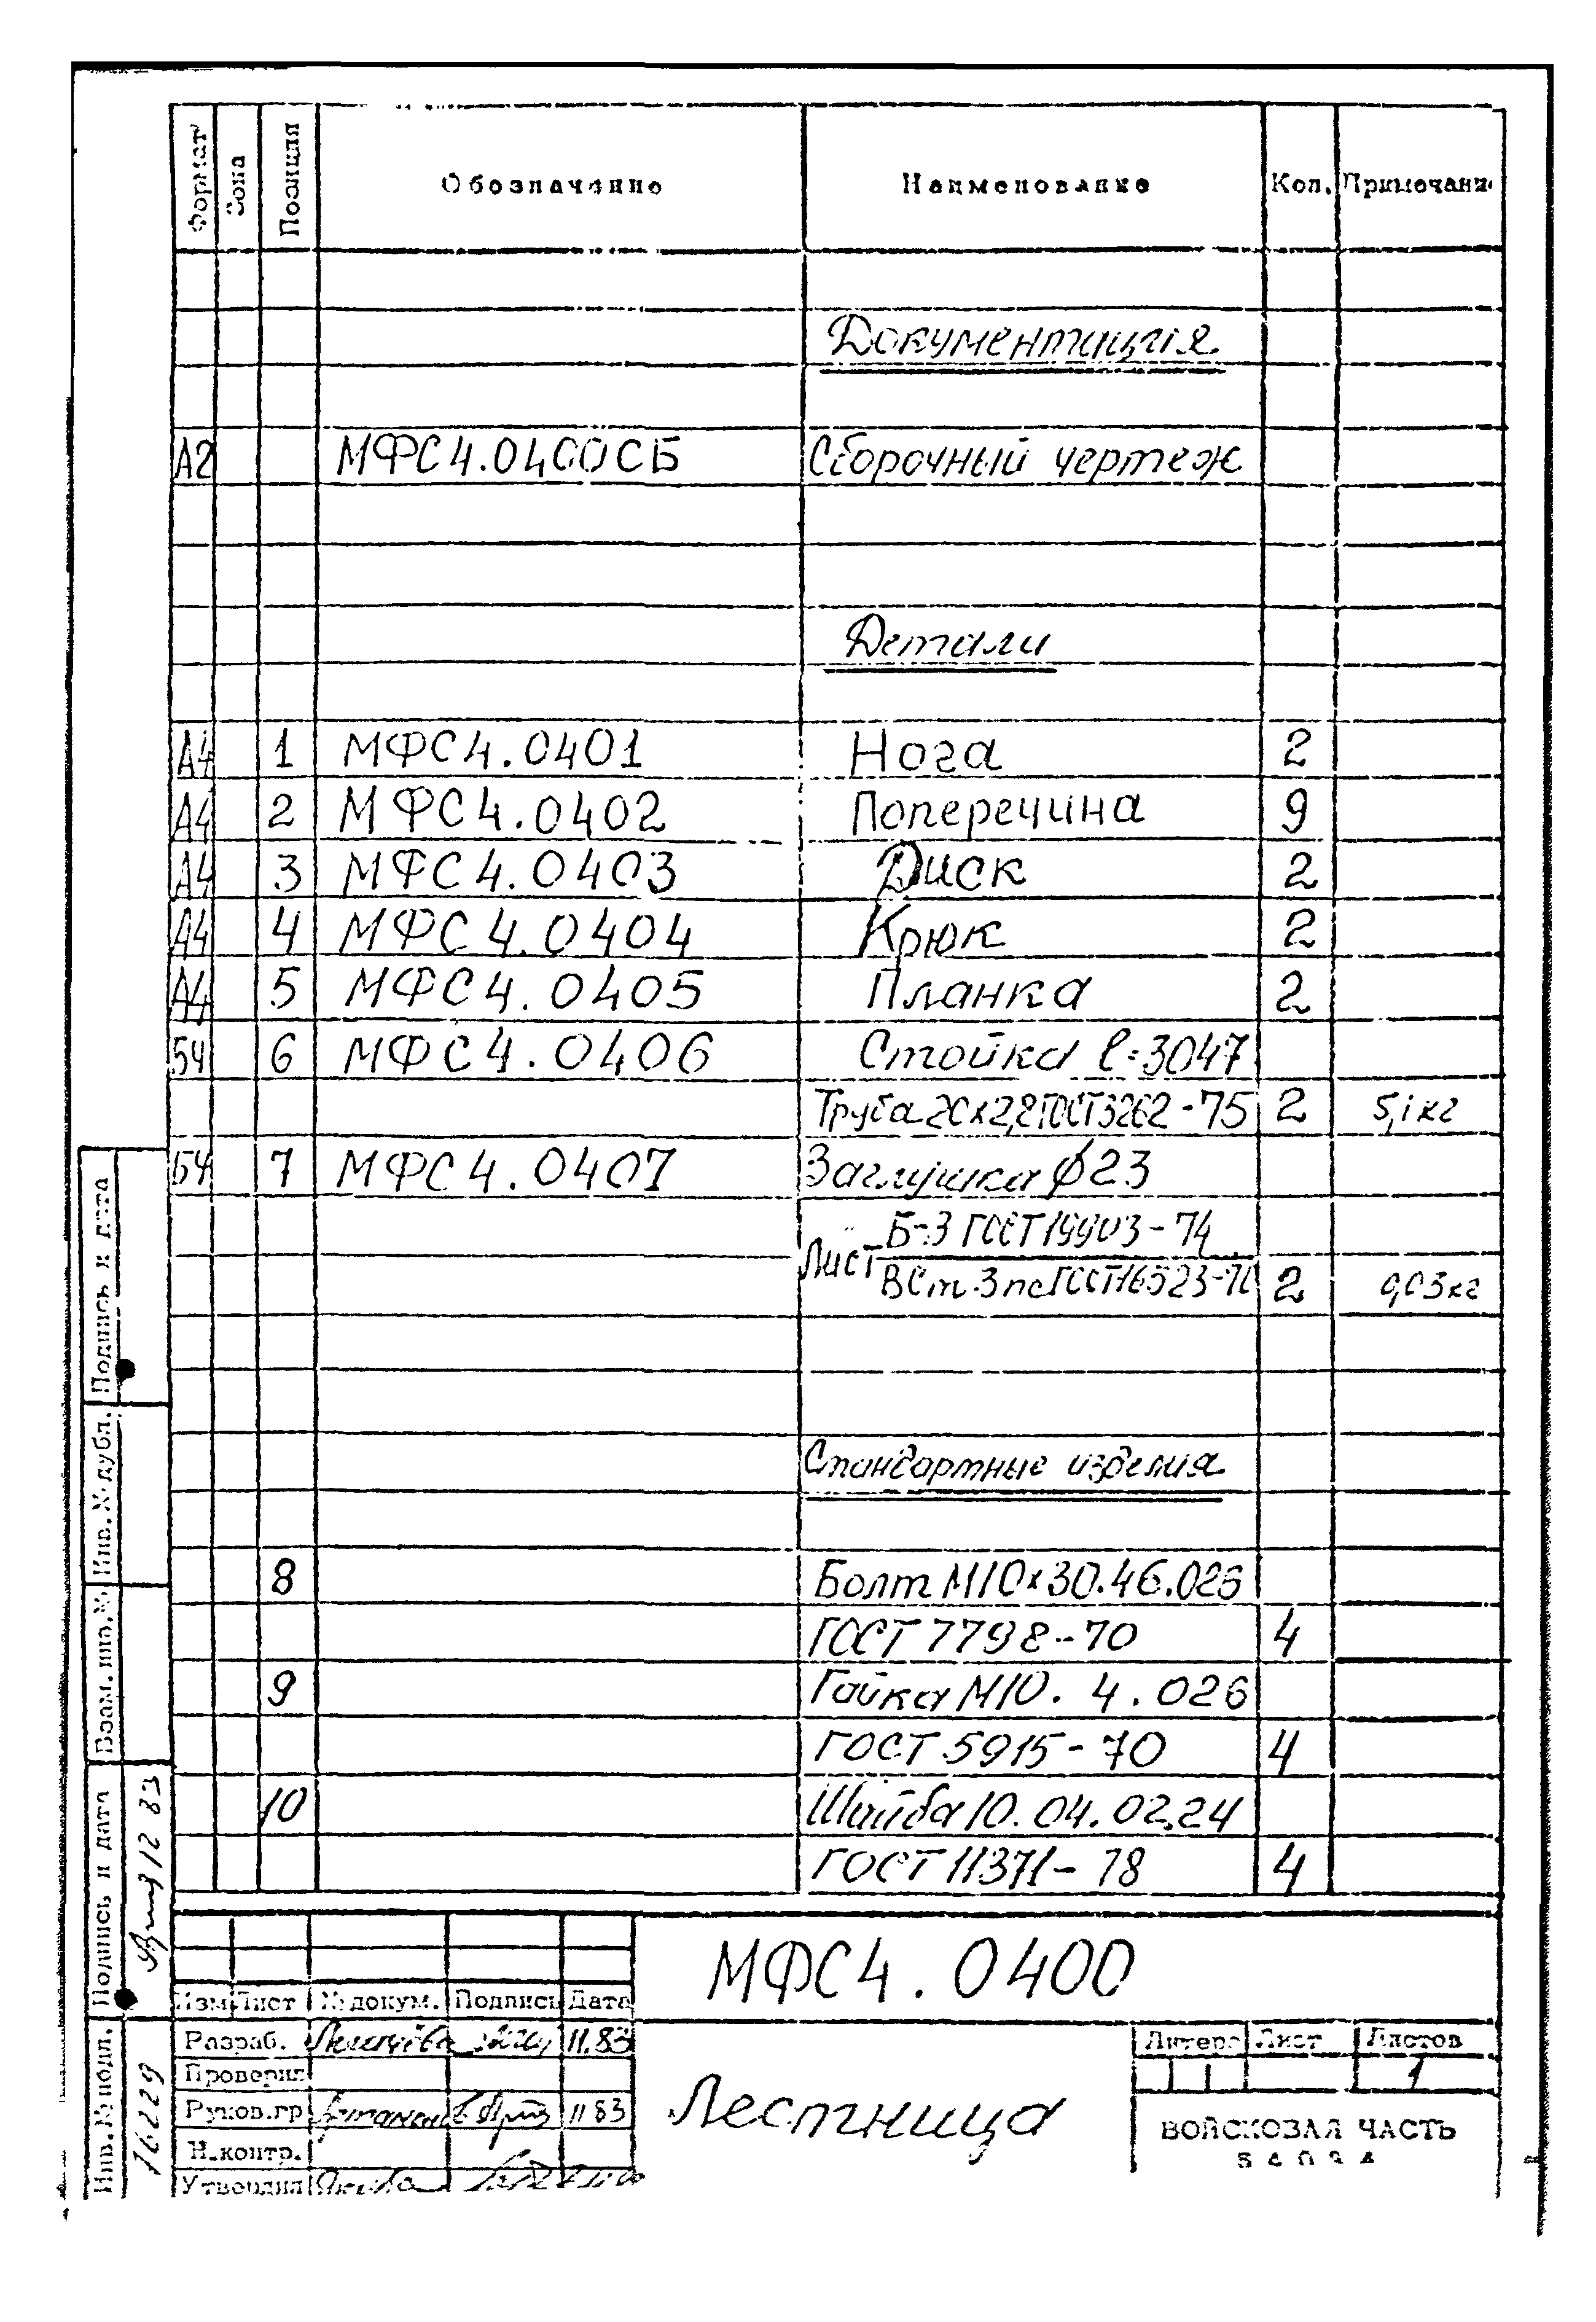 Формат Зона Позиция Обозначение Наименование Кол. Примечани
Документация
А2 МФС4.0400СБ Сборочный чертеж
Детали
А4 1 МФС4.0401 Нога 2
А4 2 МФС4.0402 Поперечина 9
А4 3 МФС4.0403 Диск 2
А4 4 МФС4.0404 Крюк 2
А4 5 МФС4.0405 Планка 2
БЧ 6 МФС4.0406 Стойка ℓ=3047
Труба 20х2,8 ГОСТ 3262-75 2 5,1 кг
БЧ 7 МФС4.0407 Заглушка ф23
Б-3 ГОСТ 19903-74
Лист
ВСт.3пс ГОСТ 16523-70 2 0,03 кг
Стандартные изделия
8 Болт М10х30.46.026
ГОСТ 7798-70 4
9 Гайка М10.4.026
ГОСТ 5915-70 4
10 Шайба 10.04.02.24
ГОСТ 11371-78 4
МФС4.0400
Изм Лист № докум. Подпись Дата
Разраб. 11.83
Проверил
Руков.гр 11 83
Н.контр.
Утвердил
Лестница
Литера Лист Листов
1
ВОЙСКОВАЯ ЧАСТЬ
Подпись и дата
Инв. № дубл.
Взам. инв. №
Подпись и дата 12 83
Инв. № подл. 16229